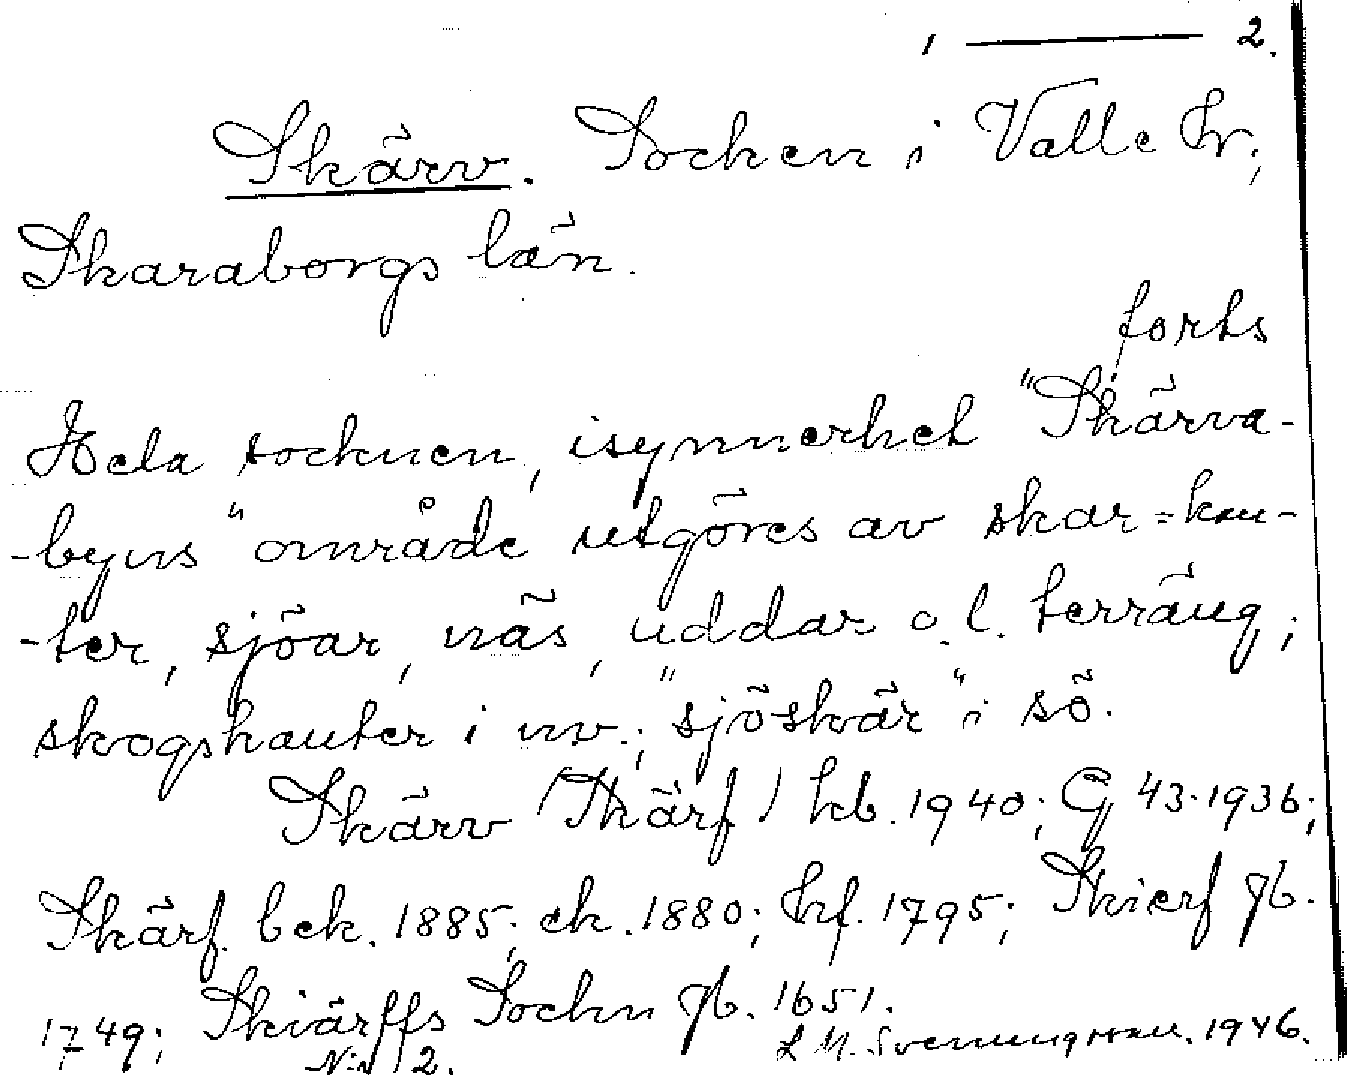 1 — 2.
Skärv. Socken i Valle hr;
Skaraborgs län.
forts
Hela socknen, isynnerhet "Skärva-
-byns" område utgöres av skar = kan-
-ter, sjöar, näs, uddar o.l. terräng;
skogskanter i nv.; "sjöskär" i sö.
Skärv (Skärf) kb. 1940; G 43. 1936;
Skärf. bek. 1885; ek. 1880; hf. 1795; Skierf jb.
1749; Skiärffs Sockn jb. 1651.
N:r 2. L M. Svenungsson. 1946.